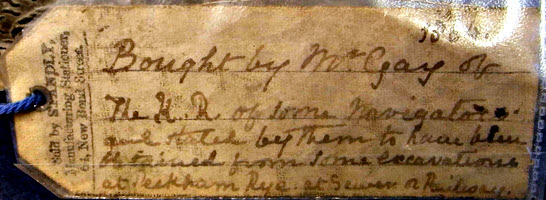 Sold by STANDLY,
Manufacturing Stationer,
64, New Bond Street.
Bought by Mr Gay of
The H. R. of some Navigators
and stated by them to have been
obtained from some excavations
at Peckham Rye, at Sewer or Railway.